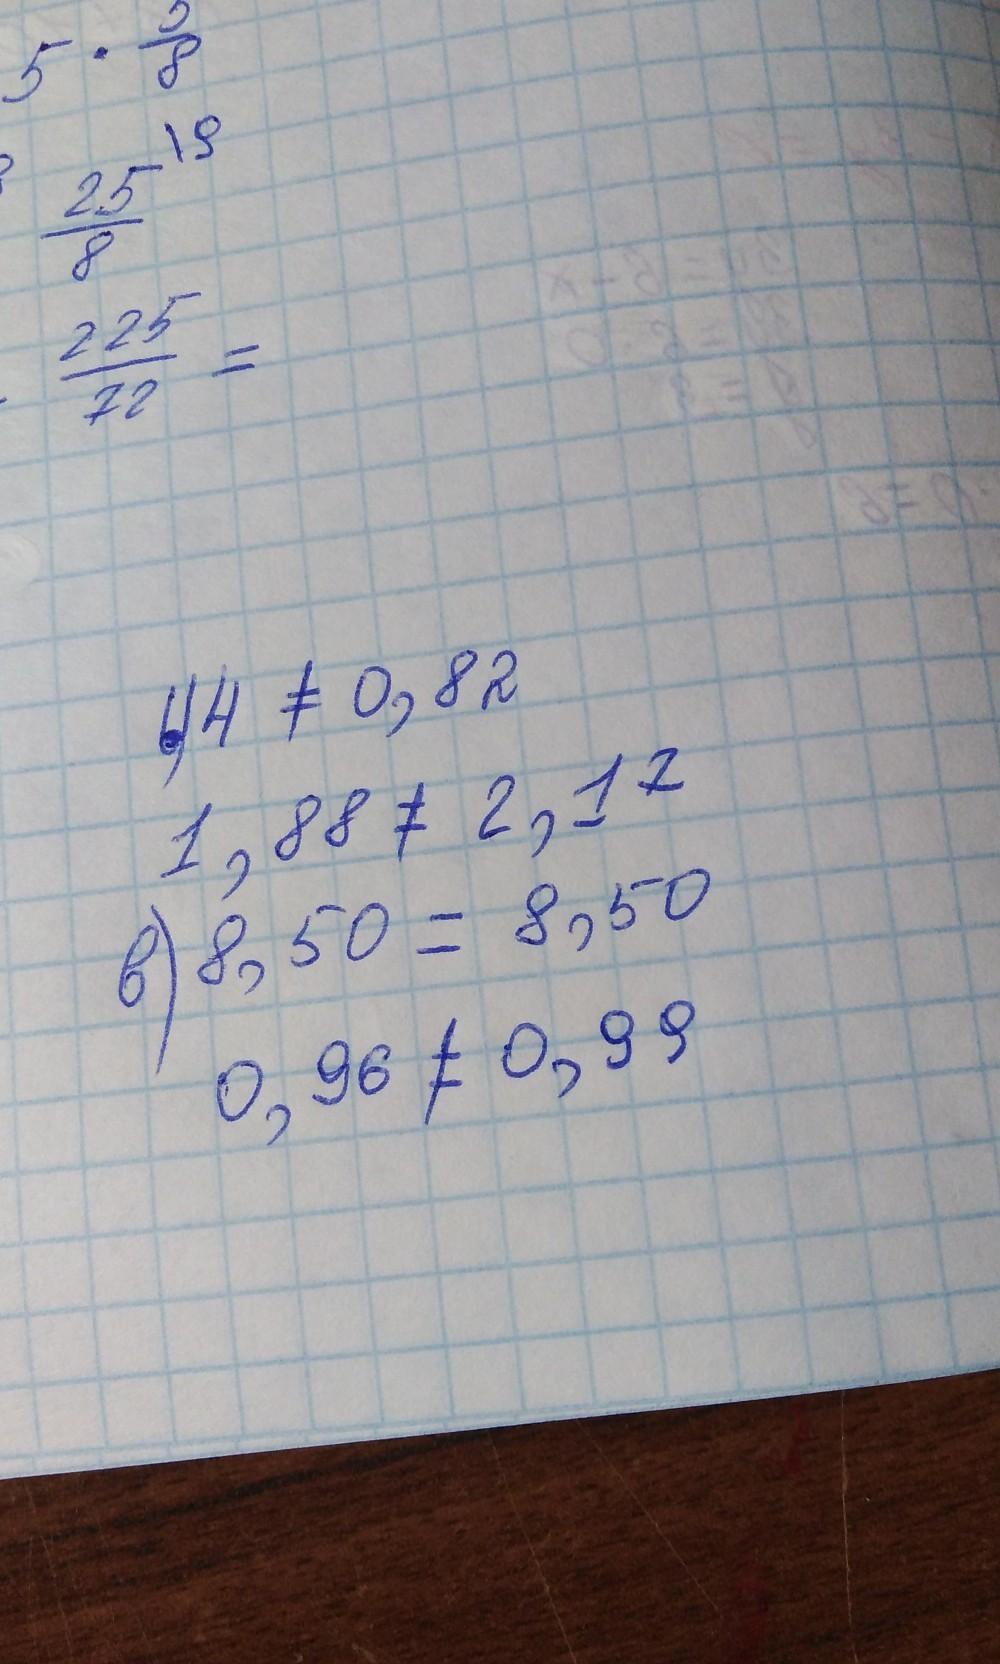 5 · 5/8
25/8 \9
225/72 =
,44 ≠ 0,82
1,88 ≠ 2,17
в) 8,50 = 8,50
0,96 ≠ 0,99